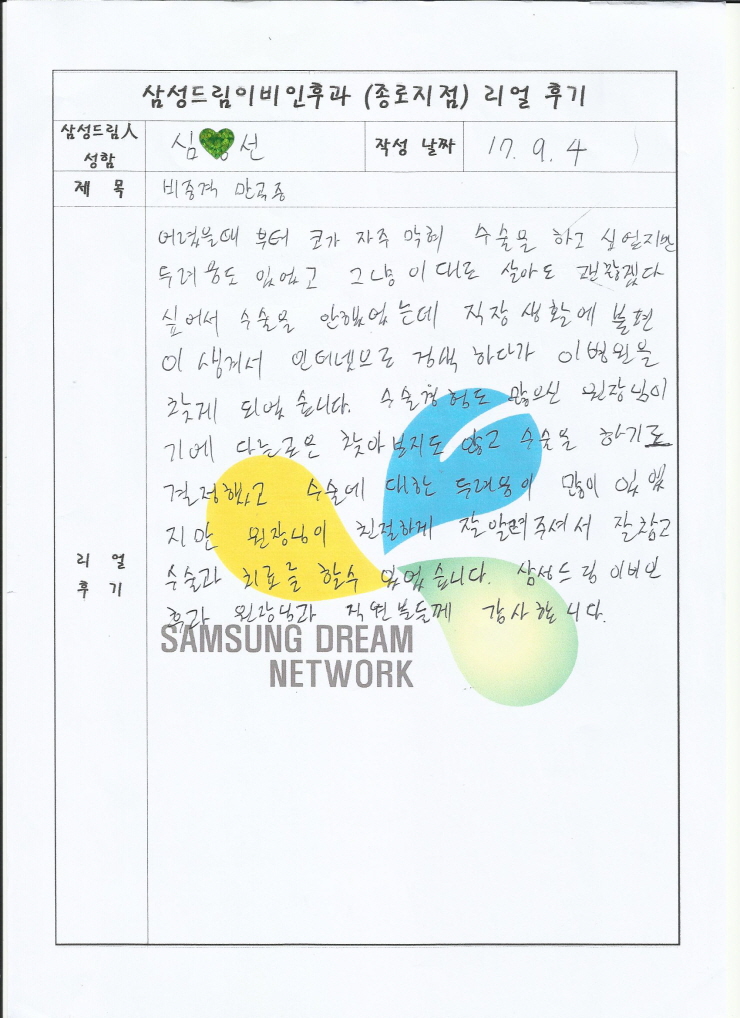 삼성드림이비인후과 (종로지점) 리얼 후기
삼성드림人
성함
심 선
작성 날짜
17. 9. 4
제 목
비중격 만곡증
어렸을때 부터 코가 자주 막혀 수술을 하고 싶었지만
두려움도 있었고 그냥 이대로 살아도 괜찮겠다
싶어서 수술을 안했었는데 직장 생활에 불편
이 생겨서 인터넷으로 검색 하다가 이병원을
찾게 되었습니다. 수술경험도 많으신 원장님이
기에 다른곳은 찾아보지도 않고 수술을 하기로
결정했고 수술에 대한 두려움이 많이 있었
지만 원장님이 친절하게 잘알려주셔서 잘참고
수술과 치료를 할수 있었습니다. 삼성드림이비인
후과 원장님과 직원분들께 감사합니다.
리 얼
후 기
SAMSUNG DREAM
NETWORK